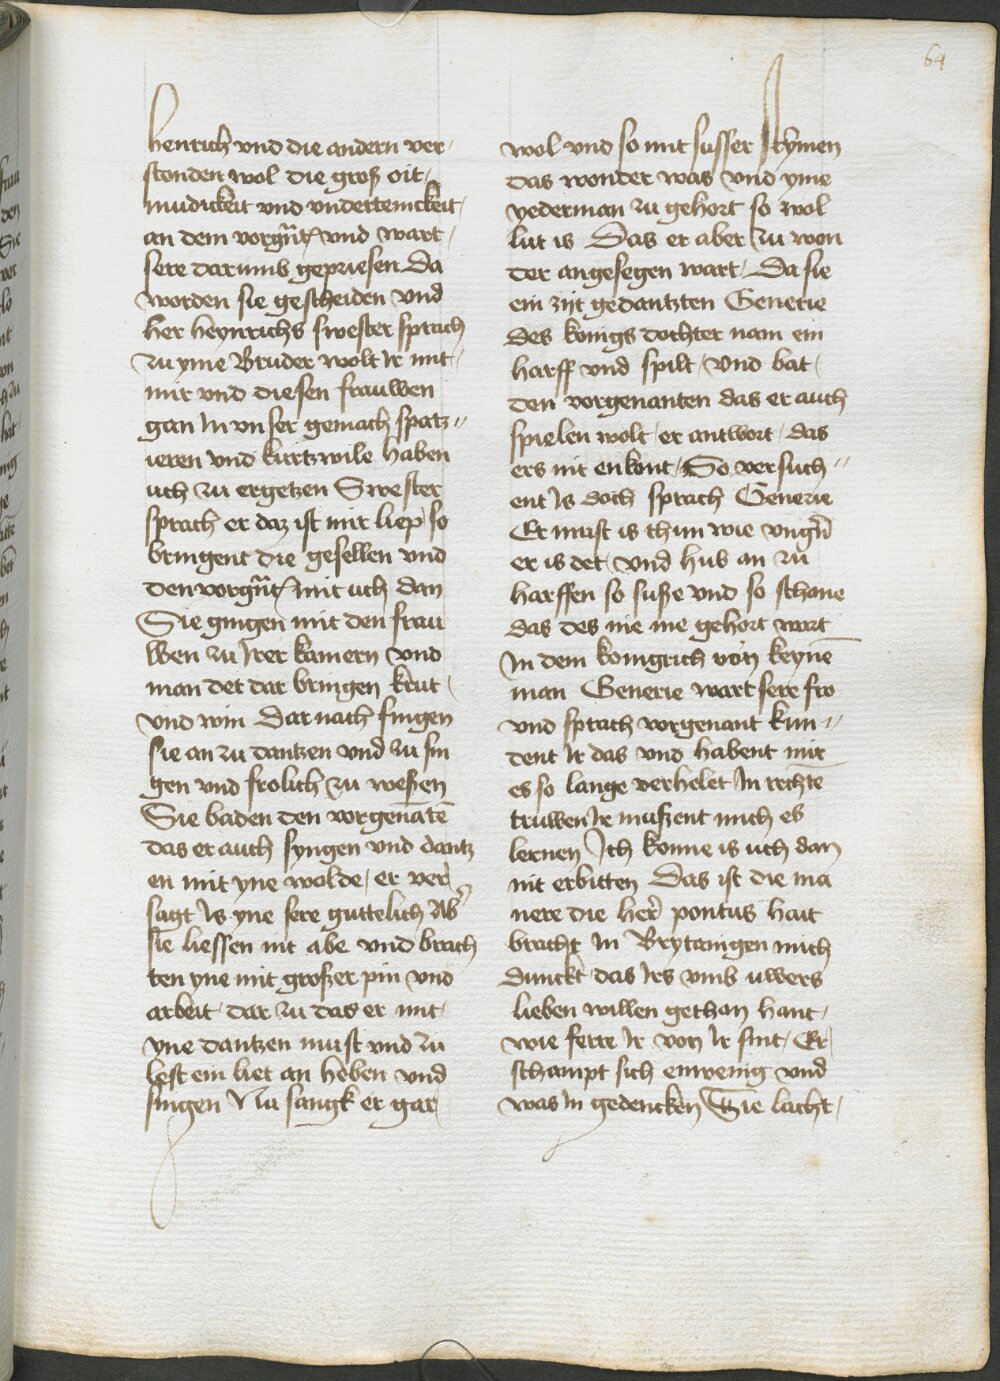 64
henrich vnd die andern ver
stonden wol die groß oit
mudickeit vnd vndertenickeit
an dem vorgn̄t vnd wart
sere darumb gepriesen Da
worden sie gescheiden vnd
her heynrichs swester sprach
zu yme Bruder wolt Ir mit
mir vnd diesen frauwen
gan In vnser gemach spatz〃
ieren vnd kurtzwile haben
uch zu ergetzen Swester
sprach er daz ist mir liep so
bringent die gesellen vnd
den vorgn̄t mit uch dan
Sie gingen mit den frau
wen zu Irer kamern vnd
man det dar bringen krut
vnd win Dar nach fingen
sie an zu dantzen vnd zu sin
gen vnd frolich zu weßen
Sie baden den vorgenātē
das er auch syngen vnd dantz
en mit yne wolde / er ver
sagt Is yne sere guttelich Ab̾
sie liessen nit abe vnd brach
ten yne mit großer pin vnd
arbeit dar zu das er mit
yne dantzen must vnd zu
lest ein liet an heben vnd
singen Nu sangk er gar
wol vnd so mit susser stymen
das wonder was vnd yme
yederman zu gehort so wol
lut is Das er aber zu won
der angesegen wart / Da sie
ein zijt gedantzten Generie
des konigs dochter nam ein
harff vnd spilt / vnd bat
den vorgenanten das er auch
spielen wolt / er antwort / das
ers nit enkont / So versuch〃
ent Is doch sprach Generie
Er must is thun wie vngn̄
er is det / vnd hub an zu
harffen so suße vnd so schone
das des nie me gehort wart
In dem konigrich von keynē
man Generie wart sere fro
vnd sprach vorgenant kun〃
dent Ir das vnd habent mir
es so lange verhelet In rechtē
truwen Ir mußent mich es
lernen Ich konne is uch dan
nit erbitten Das ist die ma
nere die her̄ pontus hait
bracht In Brytanigen mich
dunckt das Irs vmb uwers
lieben willen gethan hant /
wie ferre Ir von Ir sint / Er
schampt sich enwenig vnd
was In gedencken Sie lacht /